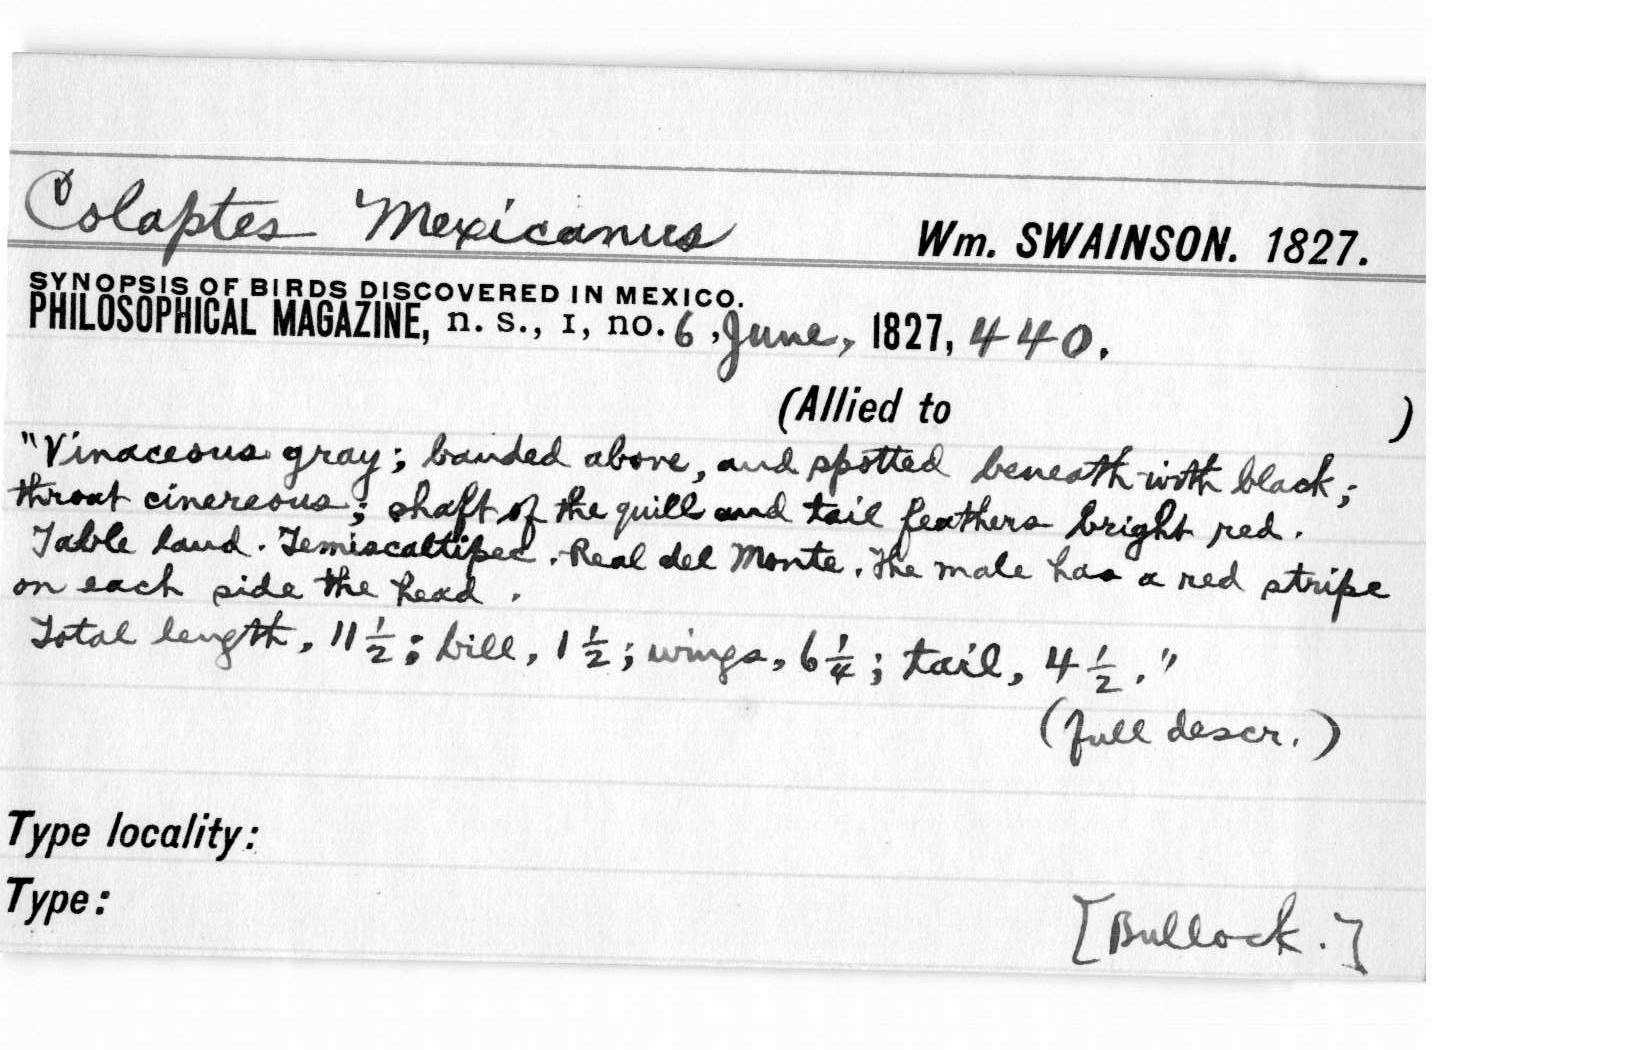 Colaptes Mexicanus Wm. SWAINSON. 1827.
SYNOPSIS OF BIRDS DISCOVERED IN MEXICO.
PHILOSOPHICAL MAGAZINE, n. s., 1, no. 6, June, 1827, 440.
(Allied to )
"Vinaceous gray; banded above, and spotted beneath with black;
throat cinereous; shaft of the quill and tail feathers bright red.
Table land. Temiscaltipec. Real del Monte. The male has a red stripe
on each side the head.
Total length, 11 1/2; bill, 1 1/2; wings, 6 1/4; tail, 4 1/2."
(full descr.)
Type locality:
Type:
[Bullock.]